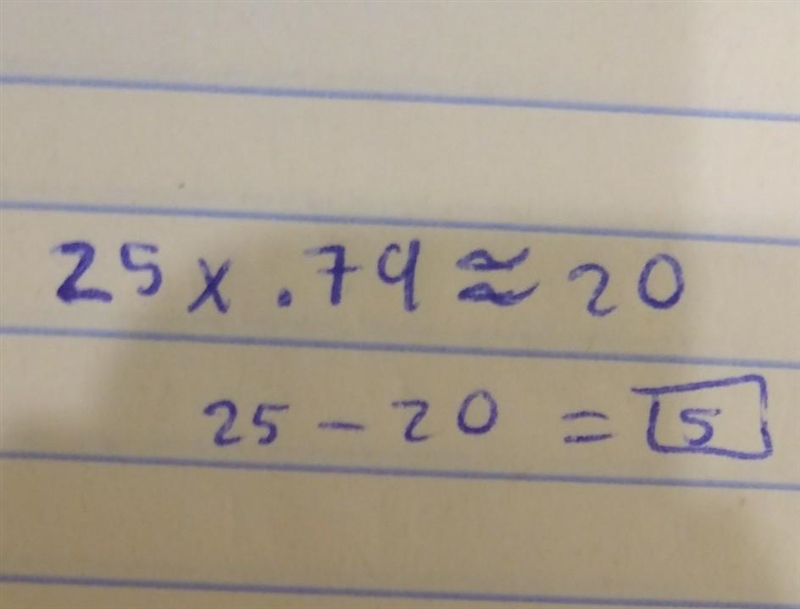 25 x .79 ≈ 20
25 - 20 = 5